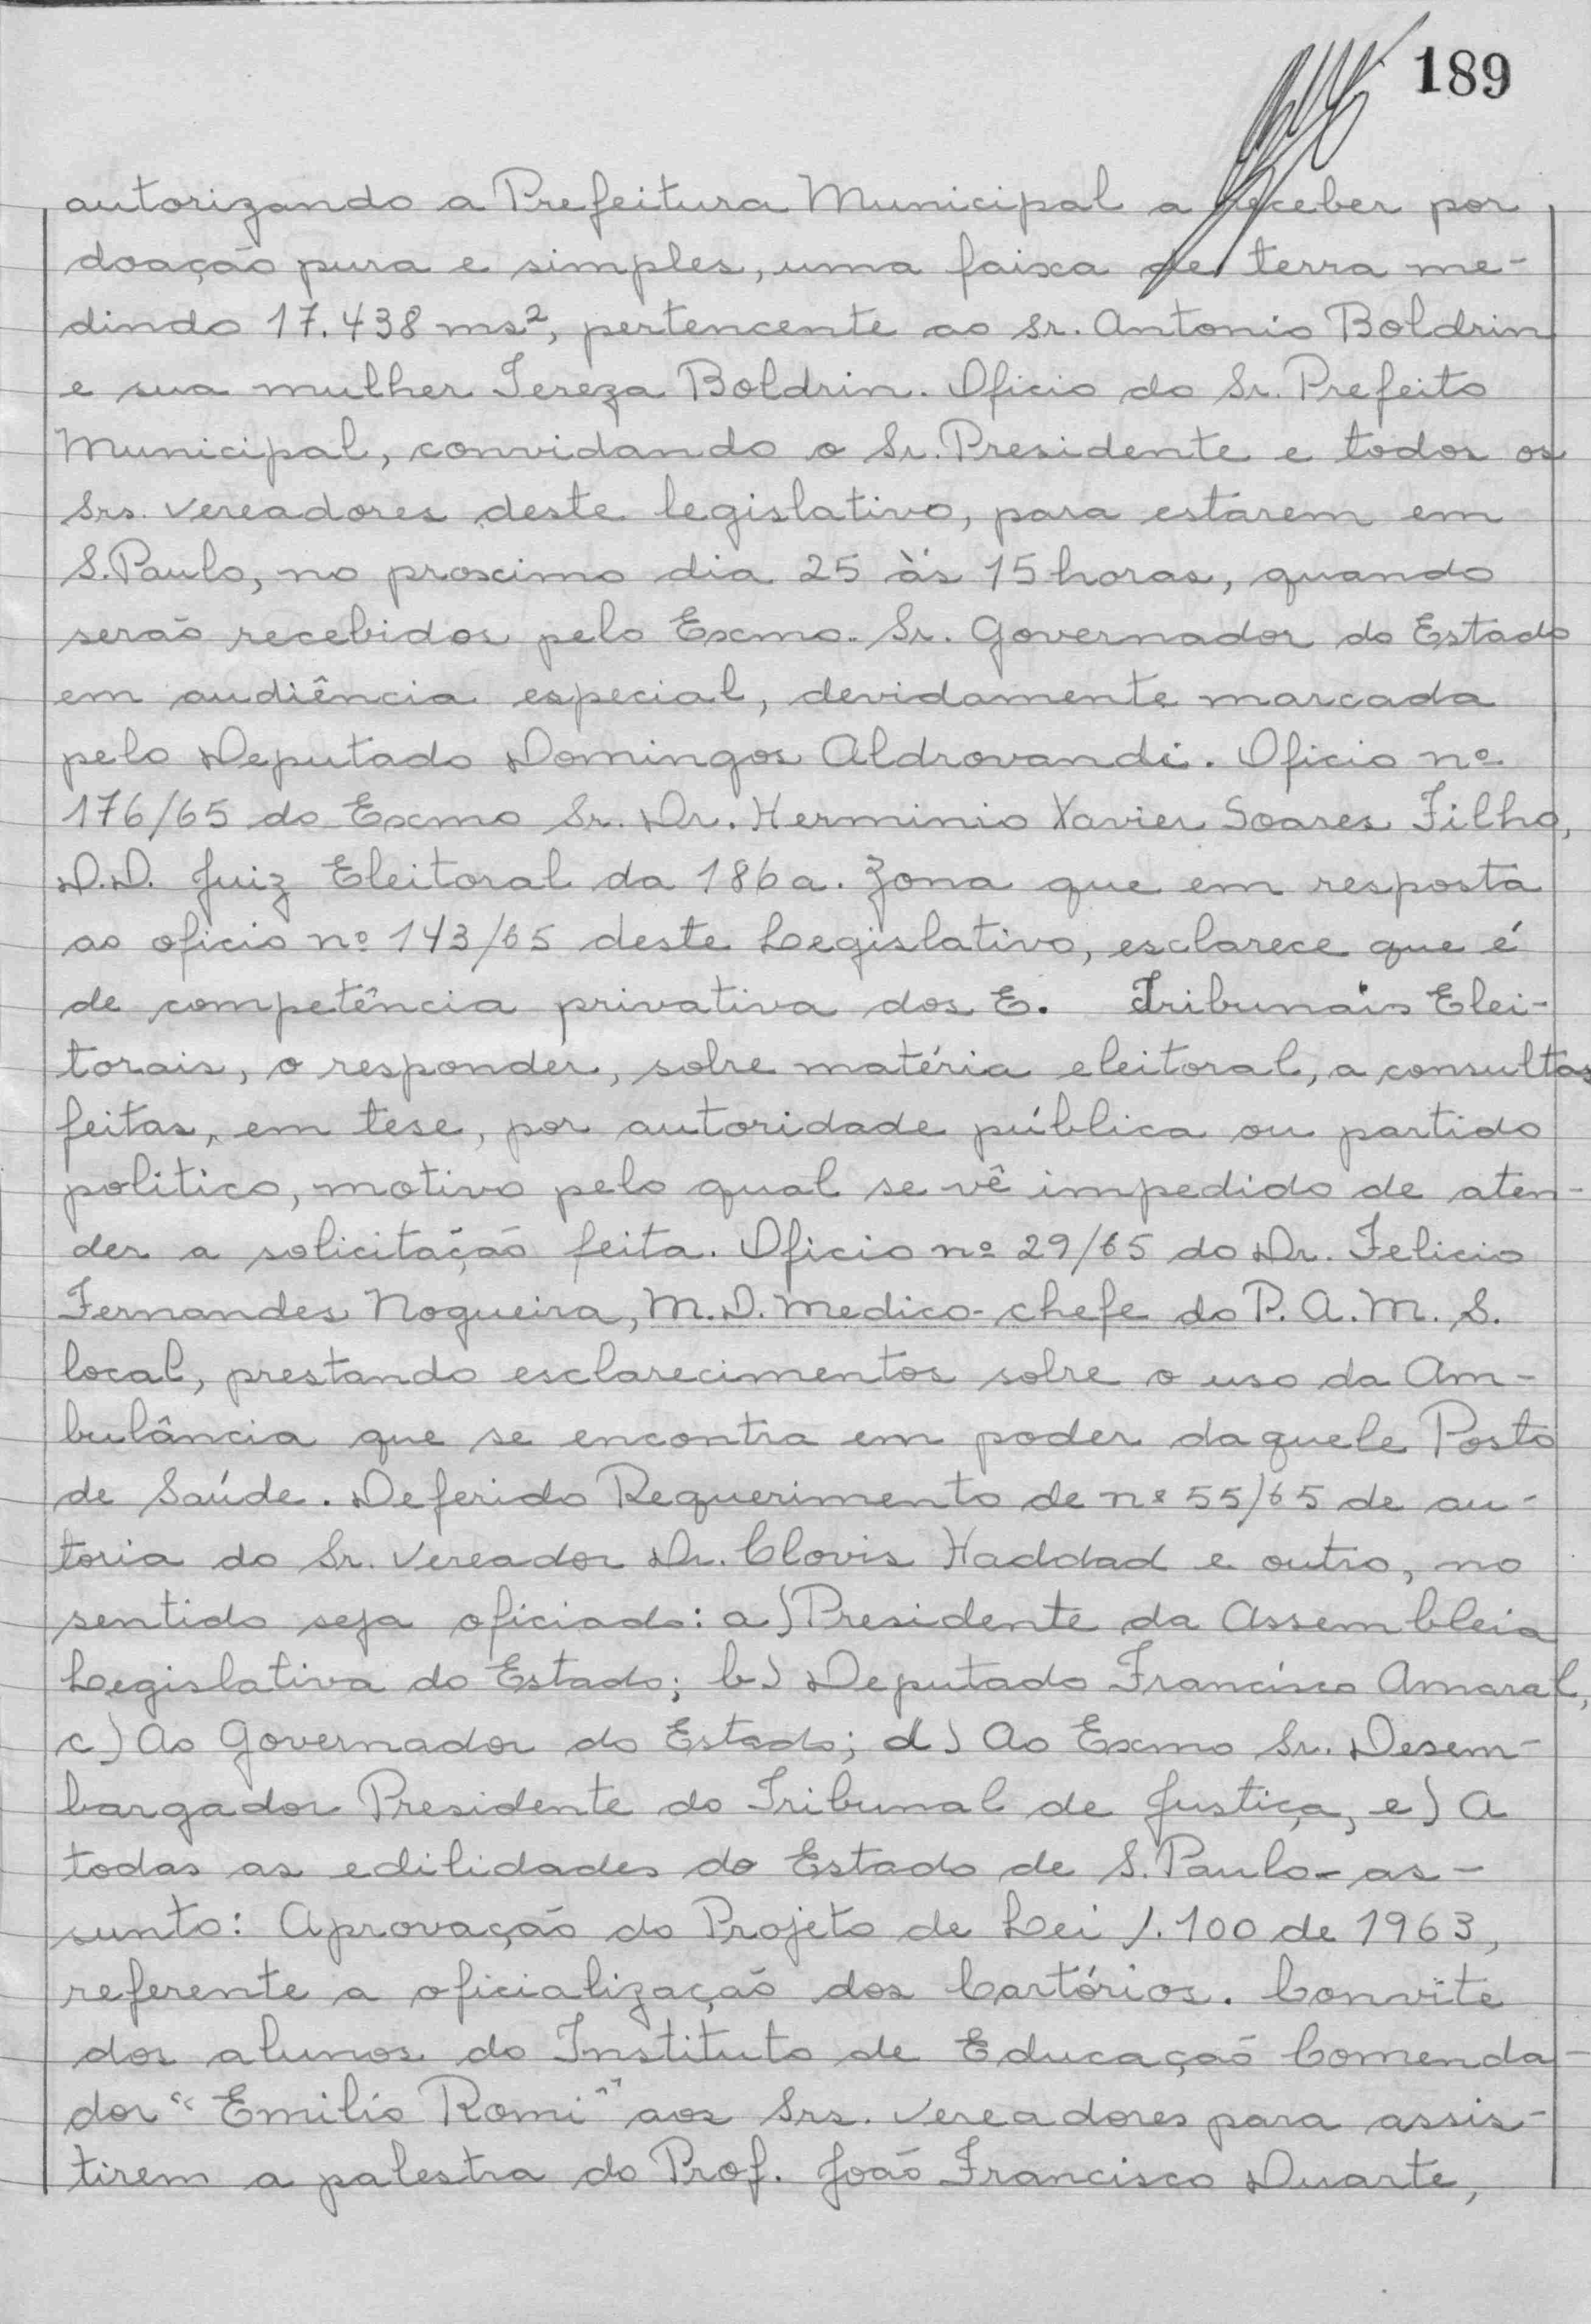 189
autorizando a Prefeitura Municipal a receber por
doação pura e simples, uma faixa de terra me-
dindo 17.438 ms², pertencente ao sr. Antonio Boldrin
e sua mulher Tereza Boldrin. Oficio do Sr. Prefeito
Municipal, convidando o Sr. Presidente e todos os
Srs. Vereadores deste legislativo, para estarem em
S. Paulo, no proximo dia 25 às 15 horas, quando
serão recebidos pelo Exmo. Sr. Governador do Estado
em audiência especial, devidamente marcada
pelo Deputado Domingos Aldrovandi. Oficio nº
176/65 do Exmo Sr. Dr. Herminio Xavier Soares Filho,
D.D. Juiz Eleitoral da 186a. Zona que em resposta
ao oficio nº 143/65 deste Legislativo, esclarece que é
de competência privativa dos E. Tribunais Elei-
torais, o responder, sobre matéria eleitoral, a consultas
feitas, em tese, por autoridade pública ou partido
politico, motivo pelo qual se vê impedido de aten-
der a solicitação feita. Oficio nº 29/65 do Dr. Felicio
Fernandes Nogueira, M.D. Medico-chefe do P.A.M.S.
local, prestando esclarecimentos sobre o uso da Am-
bulância que se encontra em poder daquele Posto
de Saúde. Deferido Requerimento de nº 55/65 de au-
toria do Sr. Vereador Dr. Clovis Haddad e outro, no
sentido seja oficiado: a) Presidente da Assembleia
Legislativa do Estado; b) Deputado Francisco Amaral,
c) Ao Governador do Estado; d) Ao Exmo Sr. Desem-
bargador Presidente do Tribunal de Justiça, e) A
todas as edilidades do Estado de S. Paulo - as-
sunto: Aprovação do Projeto de Lei 1.100 de 1963,
referente a oficialização dos Cartórios. Convite
dos alunos do Instituto de Educação Comenda-
dor "Emilio Romi" aos Srs. Vereadores para assis-
tirem a palestra do Prof. João Francisco Duarte,